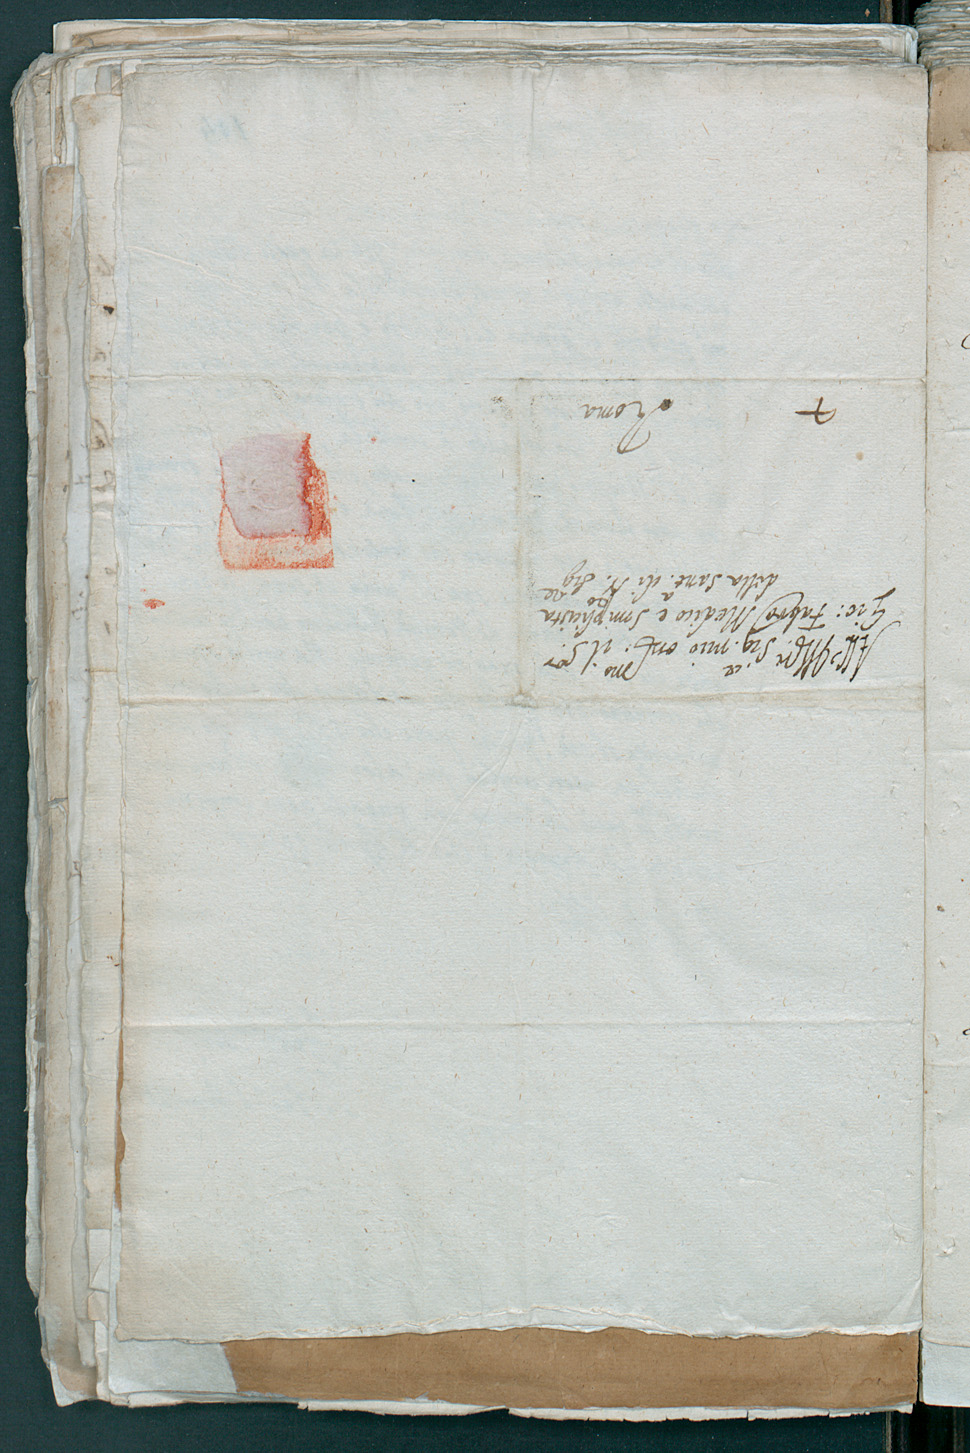 All' Ill.re Sig. mio oss.mo il S.or
Gio: Fabro Medico e Simplicista
della Sant.à di N. Sig.re
Roma